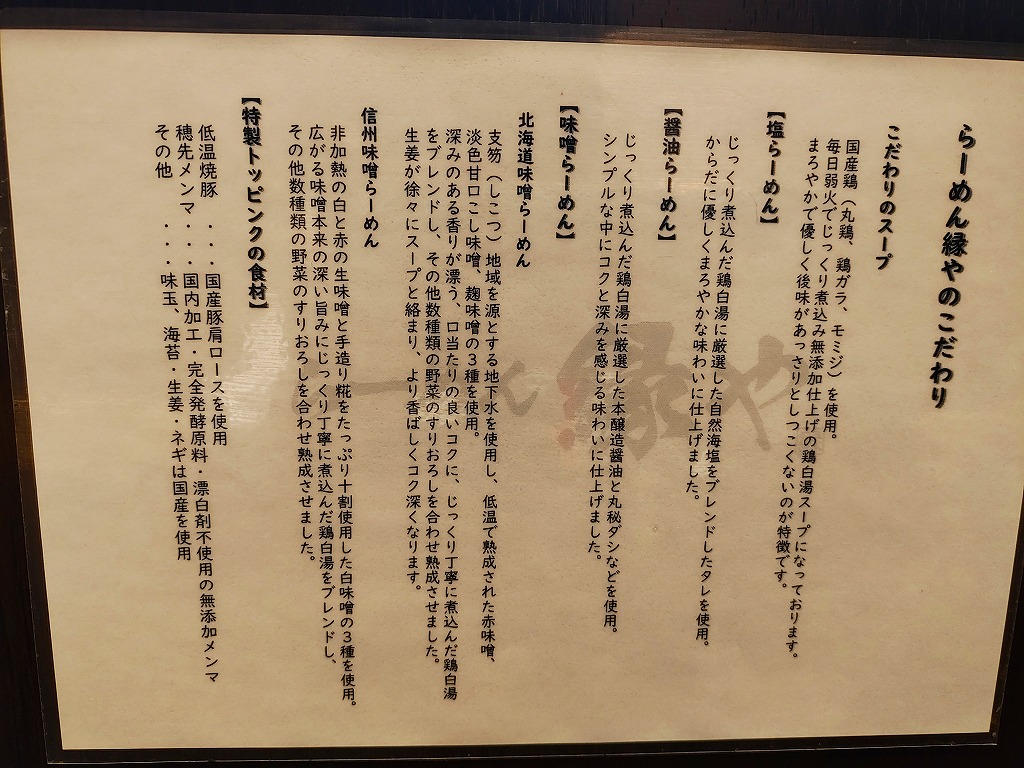 らーめん縁やのこだわり
こだわりのスープ
国産鶏（丸鶏、鶏ガラ、モミジ）を使用。
毎日弱火でじっくり煮込み無添加仕上げの鶏白湯スープになっております。
まろやかで優しく後味があっさりとしつこくないのが特徴です。
【塩らーめん】
じっくり煮込んだ鶏白湯に厳選した自然海塩をブレンドしたタレを使用。
からだに優しくまろやかな味わいに仕上げました。
【醤油らーめん】
じっくり煮込んだ鶏白湯に厳選した本醸造醤油と丸秘ダシなどを使用。
シンプルな中にコクと深みを感じる味わいに仕上げました。
【味噌らーめん】
北海道味噌らーめん
支笏（しこつ）地域を源とする地下水を使用し、低温で熟成された赤味噌、
淡色甘口こし味噌、麹味噌の３種を使用。
深みのある香りが漂う、口当たりの良いコクに、じっくり丁寧に煮込んだ鶏白湯
をブレンドし、その他数種類の野菜のすりおろしを合わせ熟成させました。
生姜が徐々にスープと絡まり、より香ばしくコク深くなります。
信州味噌らーめん
非加熱の白と赤の生味噌と手造り糀をたっぷり十割使用した白味噌の３種を使用。
広がる味噌本来の深い旨みにじっくり丁寧に煮込んだ鶏白湯をブレンドし、
その他数種類の野菜のすりおろしを合わせ熟成させました。
【特製トッピンクの食材】
低温焼豚　．．．国産豚肩ロースを使用
穂先メンマ．．．国内加工・完全発酵原料・漂白剤不使用の無添加メンマ
その他　　．．．味玉、海苔・生姜・ネギは国産を使用
縁や